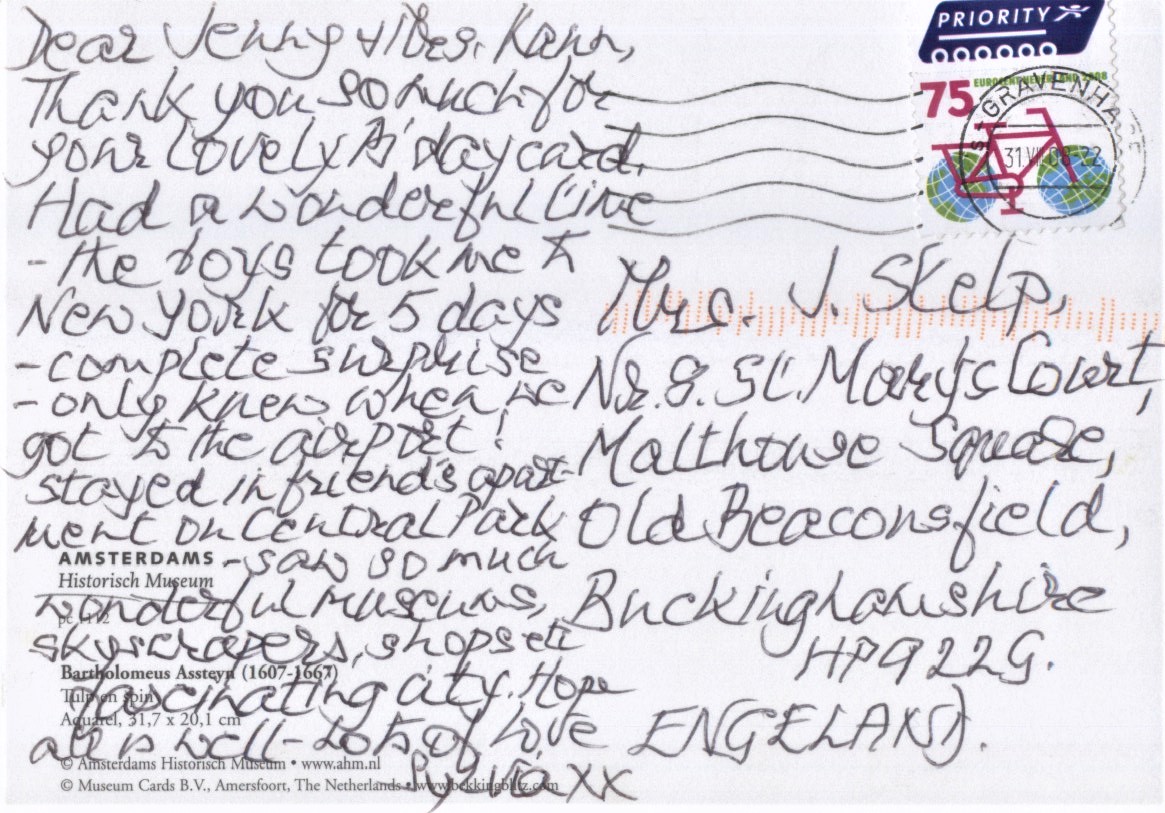 Dear Jenny & Mrs. Kann,
Thank you so much for
your lovely B'day card.
Had a wonderful time
- the boys took me to
New York for 5 days
- complete surprise
- only knew when we
got to the airport!
stayed in friend's apart-
ment on Central Park
- saw so much
wonderful museums,
skyscrapers, shops etc
fascinating city. Hope
all is well - Lots of love
Sylvia XX
PRIORITY
75 EUROCENT NEDERLAND 2008
'S GRAVENHA
31.VII
Mrs. J. Skelp,
Nr. 8. St. Mary's Court,
Malthouse Square,
Old Beaconsfield,
Buckinghamshire
HP9 22G.
ENGELAND.
AMSTERDAMS
Historisch Museum
pc 112
Bartholomeus Assteyn (1607-1667)
Tulp en spin
Aquarel, 31,7 x 20,1 cm
© Amsterdams Historisch Museum • www.ahm.nl
© Museum Cards B.V., Amersfoort, The Netherlands • www.bekkingblitz.com